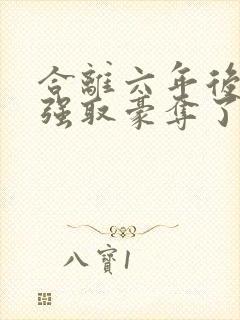 合離六年後
强取豪奪了
八寶1